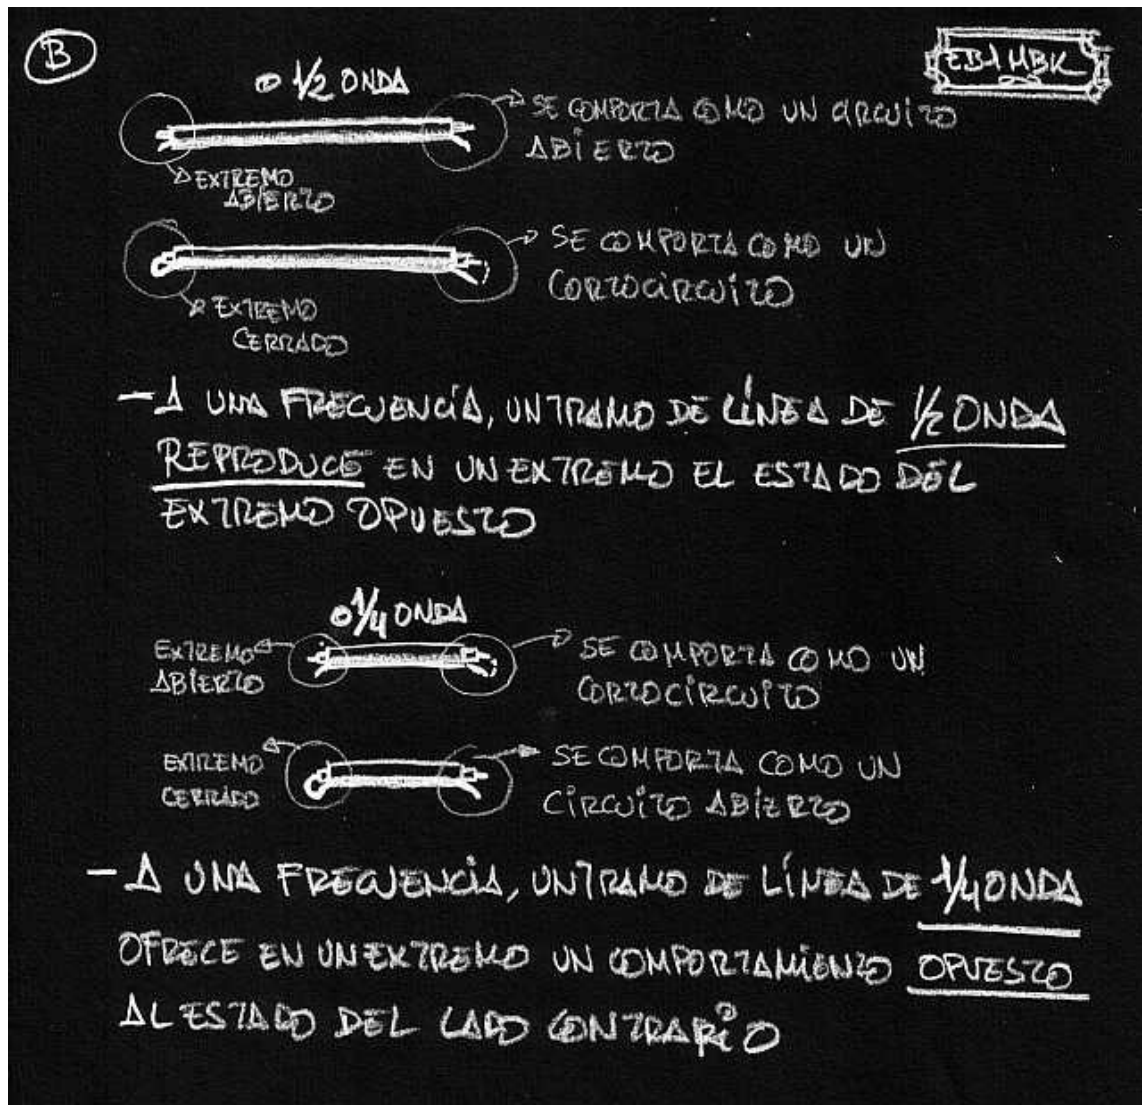 B
EB1MBK
1/2 ONDA
SE COMPORTA COMO UN CIRCUITO
ABIERTO
EXTREMO
ABIERTO
SE COMPORTA COMO UN
CORTOCIRCUITO
EXTREMO
CERRADO
- A UNA FRECUENCIA, UN TRAMO DE LÍNEA DE 1/2 ONDA
REPRODUCE EN UN EXTREMO EL ESTADO DEL
EXTREMO OPUESTO
1/4 ONDA
EXTREMO
ABIERTO
SE COMPORTA COMO UN
CORTOCIRCUITO
EXTREMO
CERRADO
SE COMPORTA COMO UN
CIRCUITO ABIERTO
- A UNA FRECUENCIA, UN TRAMO DE LÍNEA DE 1/4 ONDA
OFRECE EN UN EXTREMO UN COMPORTAMIENTO OPUESTO
AL ESTADO DEL LADO CONTRARIO